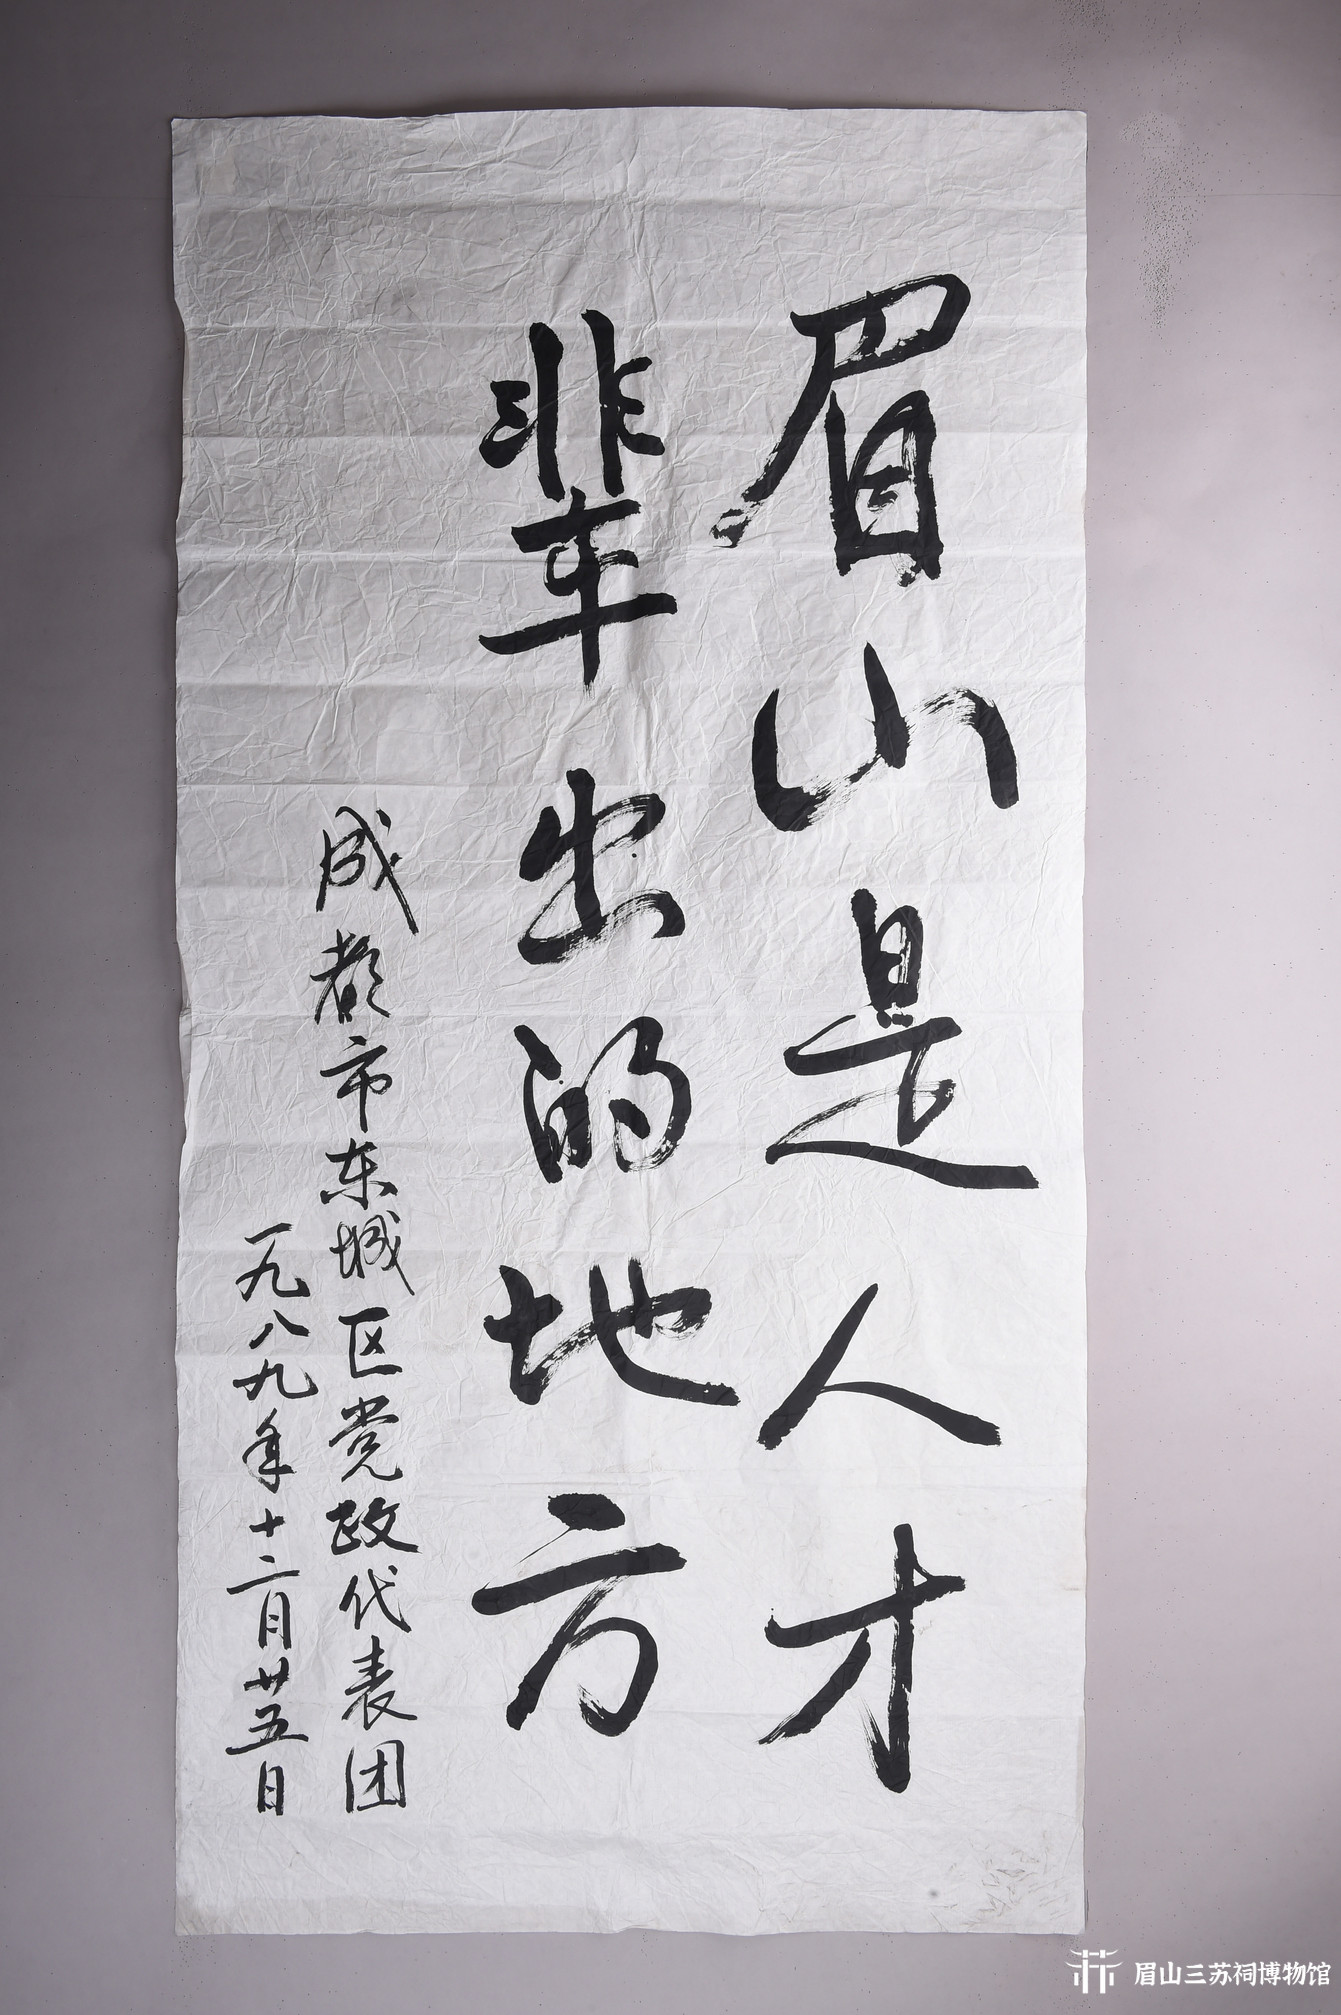 眉山是人才
辈出的地方
成都市东城区党政代表团
一九八九年十二月廿五日
眉山三苏祠博物馆